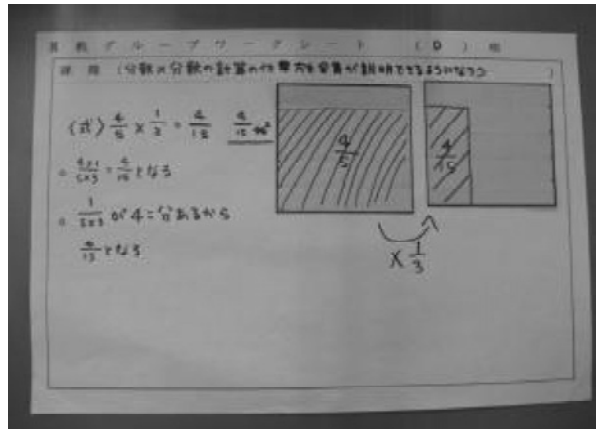 算数グループワークシート （D）班
課題（分数×分数の計算の仕方を全員が説明できるようになろう）
(式) 4/5 × 1/3 = 4/15 4/15 m²
。4×1/5×3 = 4/15 となる
。1/5×3 が4こ分あるから
4/15 となる
4/5
4/15
× 1/3